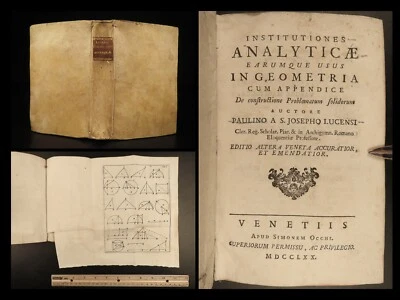 INSTITUTIONES
ANALYTICÆ
EARUMQUE USUS
IN GEOMETRIA
CUM APPENDICE
De constructione Problematum solidorum
AUCTORE
PAULINO A S. JOSEPHO LUCENSI
Cler. Reg. Scholar. Piar. & in Archigymn. Romano
Eloquentiæ Professore.
EDITIO ALTERA VENETA ACCURATIOR,
ET EMENDATIOR.
VENETIIS
APUD SIMONEM OCCHI.
SUPERIORUM PERMISSU, AC PRIVILEGIO.
MDCCLXX.